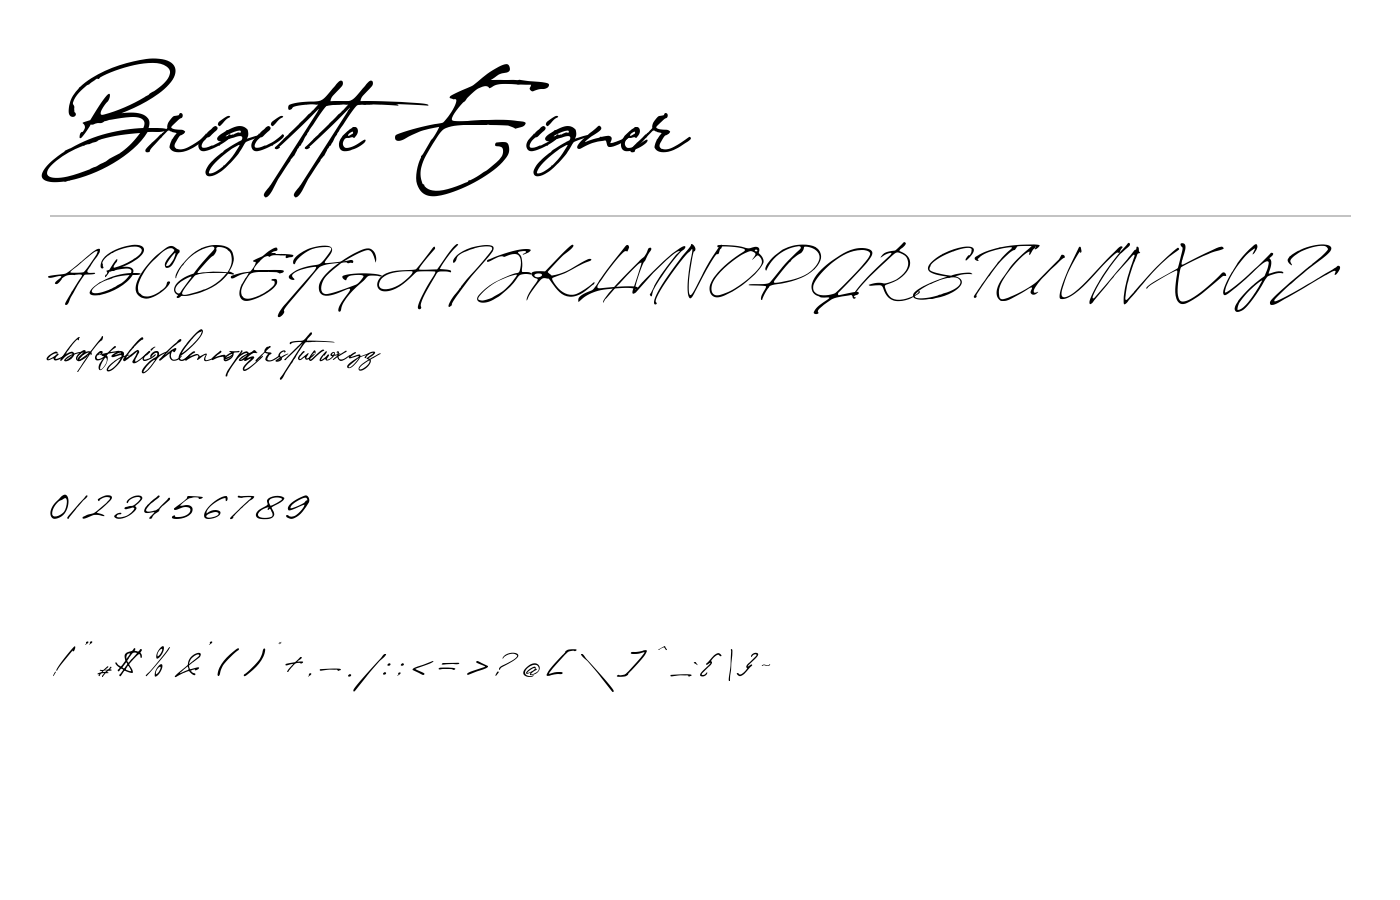 Brigitte Eigner
ABCDEFGHIJKLMNOPQRSTUVWXYZ
abcdefghijklmnopqrstuvwxyz
0123456789
!"#$%&'()*+,-./:;<=>?@[\]^_`{|}~